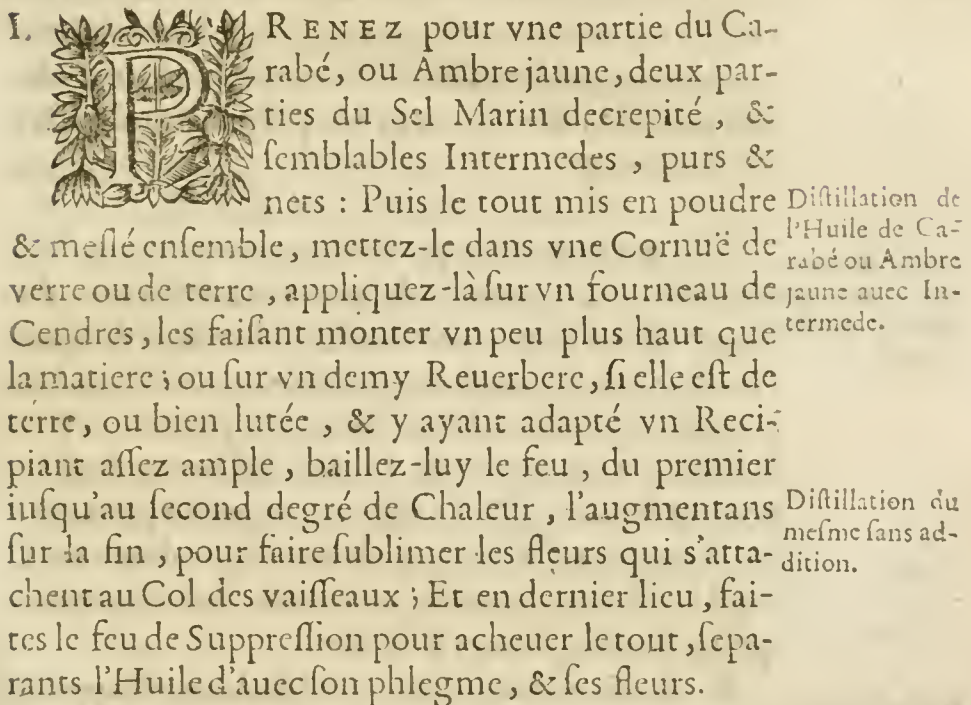 I. PRENEZ pour vne partie du Ca-
rabé, ou Ambre jaune, deux par-
ties du Sel Marin decrepité, &
ſemblables Intermedes, purs &
nets : Puis le tout mis en poudre
& meſlé enſemble, mettez-le dans vne Cornuë de
verre ou de terre, appliquez-là ſur vn fourneau de
Cendres, les faiſant monter vn peu plus haut que
la matiere ; ou ſur vn demy Reuerbere, ſi elle eſt de
terre, ou bien lutée, & y ayant adapté vn Reci-
piant aſſez ample, baillez-luy le feu, du premier
iuſqu'au ſecond degré de Chaleur, l'augmentans
ſur la fin, pour faire ſublimer les fleurs qui s'atta-
chent au Col des vaiſſeaux ; Et en dernier lieu, fai-
tes le feu de Suppreſſion pour acheuer le tout, ſepa-
rants l'Huile d'auec ſon phlegme, & ſes fleurs.
Diſtillation de
l'Huile de Ca-
rabé ou Ambre
jaune auec In-
termede.
Diſtillation du
meſme ſans ad-
dition.